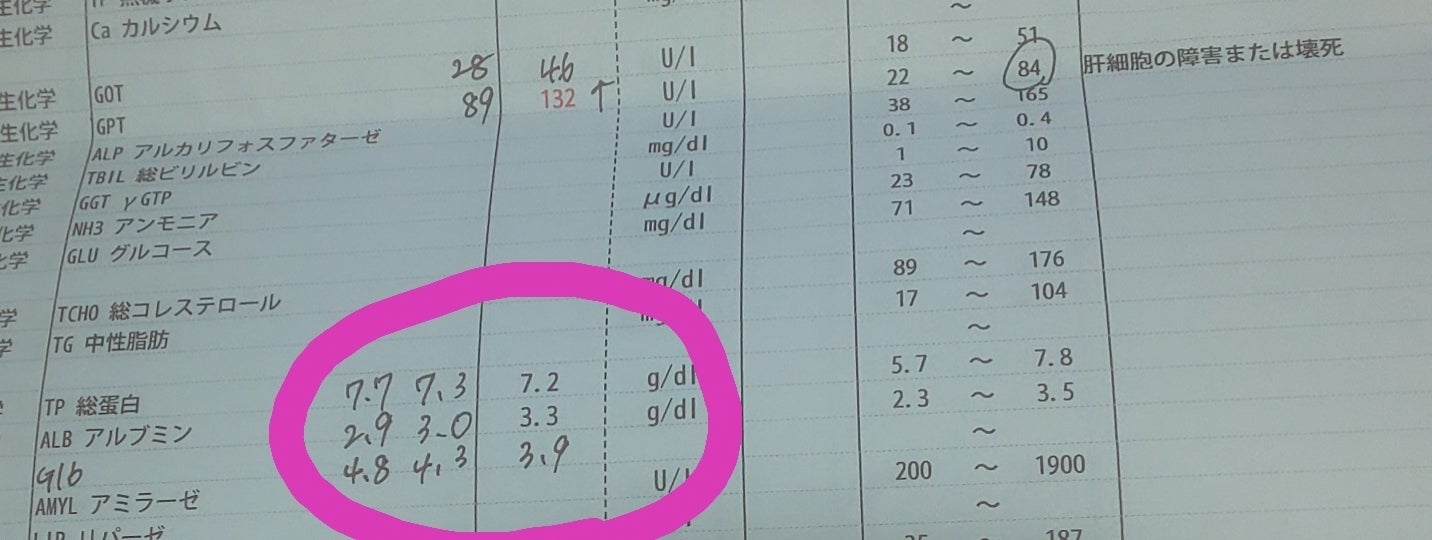 生化学 Ca カルシウム ～
生化学 GOT 28 46 U/l 18 ～ 51
生化学 GPT 89 132 ↑ U/l 22 ～ 84 肝細胞の障害または壊死
生化学 ALP アルカリフォスファターゼ U/l 38 ～ 165
生化学 TBIL 総ビリルビン mg/dl 0.1 ～ 0.4
化学 GGT γGTP U/l 1 ～ 10
化学 NH3 アンモニア μg/dl 23 ～ 78
化学 GLU グルコース mg/dl 71 ～ 148
～
学 TCHO 総コレステロール mg/dl 89 ～ 176
学 TG 中性脂肪 mg/dl 17 ～ 104
～
TP 総蛋白 7.7 7.3 7.2 g/dl 5.7 ～ 7.8
ALB アルブミン 2.9 3.0 3.3 g/dl 2.3 ～ 3.5
Glb 4.8 4.3 3.9 ～
AMYL アミラーゼ U/l 200 ～ 1900
～
リパーゼ 187